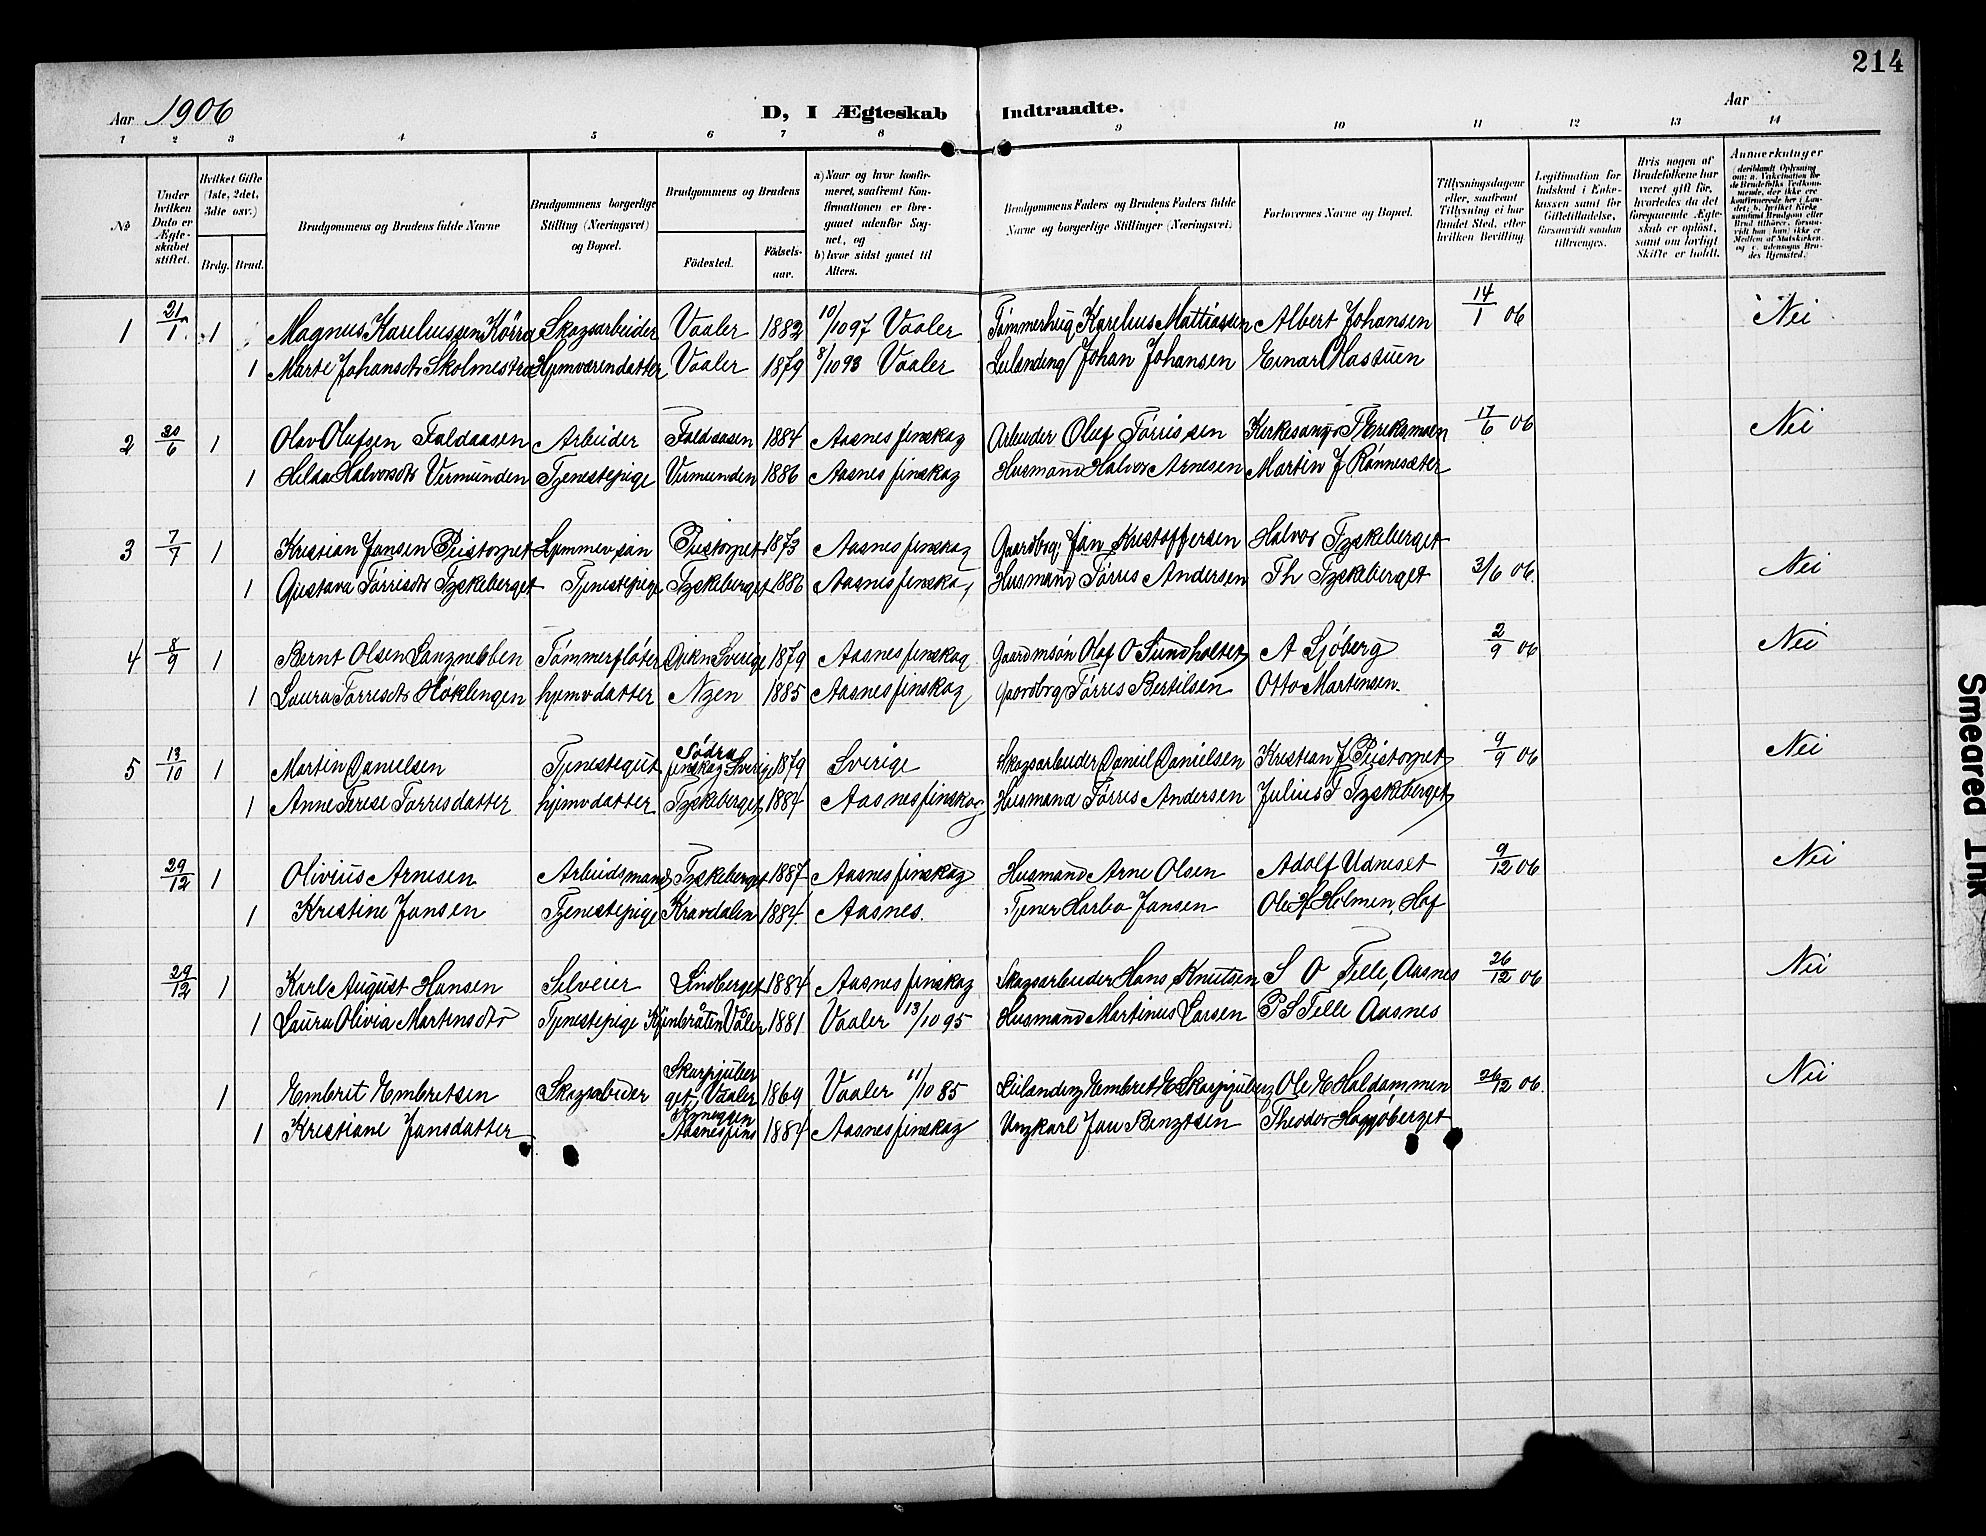 214
Aar 1906 D, I Ægteskab Indtraadte. Aar
1 2 3 4 5 6 7 8 9 10 11 12 13 14
№ Under hvilken Dato er Ægteskabet stiftet. Hvilket Gifte (1ste, 2det, 3die osv.) Brdg. Brud. Brudgommens og Brudens fulde Navne Brudgommens borgerlige Stilling (Næringsvei) og Bopæl. Brudgommens og Brudens Fødested. Fødselsaar. a) Naar og hvor konfirmeret, saafremt Konfirmationen er foregaaet udenfor Sognet, og b) hvor sidst gaaet til Alters. Brudgommens Faders og Brudens Faders fulde Navne og borgerlige Stillinger (Næringsvei). Forlovernes Navne og Bopæl. Tillysningsdagene eller, saafremt Tillysning ei har fundet Sted, efter hvilken Bevilling Legitimation for Indskud i Enkekassen samt for Giftetilladelse, forsaavidt saadan tiltrænges. Hvis nogen af Brudefolkene har været gift før, hvorledes da det foregaaende Ægteskab er opløst, samt om lovligt Skifte er holdt. Anmerkninger
1 21/1 1 Magnus Kareliussen Kørra Skogsarbeider Vaaler 1882 10/10 97 Vaaler Tømmerhug Karelius Mattiassen Albert Johansen 14/1 06 Nei
1 Marte Johansdtr Skolmestra Hjemværendatter Vaaler 1879 8/10 93 Vaaler Leilænding Johan Johansen Einar Classuen
2 30/6 1 Olav Olufsen Faldaasen Arbeider Faldaasen 1884 Aasnes finskog Arbeider Oluf Tørrissen Kirkesanger T Eriksmoen 17/6 06 Nei
1 Helda Halvorsdtr Vermunden Tjenestepige Vermunden 1886 Aasnes finskog Husmand Halvor Arnesen Martin J Rønnesæter
3 7/7 1 Kristian Jansen Peistorpet Hjemmev søn Peistorpet 1873 Aasnes finskog Gaardbrg. Jan Kristoffersen Halvor Tyskeberget
1 Gustava Tørrisdtr Tyskeberget Tjenestepige Tyskeberget 1886 Aasnes finskog Husmand Tørris Andersen Th Tyskeberget 3/6 06. Nei
4 8/9 1 Bernt Olsen Langnebben Tømmerfløter Sverige 1879 Aasnes finskog Gaardmsøn Olaf O Sundholtet A Sjøberg 2/9 06 Nei
1 Laura Tørrisdtr Høklengen hjemv datter Ngen 1885 Aasnes finskog gaardbrg Tørris Bertilsen Otto Martensen.
5 13/10 1 Martin Danielsen Tjenestegut Södra finskog Sverige 1879 Sverige Skogsarbeider Daniel Danielsen Kristian J Peistorpet 9/9 06 Nei
1 Anne Terese Tørrisdatter hjemv datter Tyskeberget 1884 Aasnes finskog Husmand Tørris Andersen Julius T Tyskeberget
29/12 1 Olivius Arnesen Arbeidsmand Tyskeberget 1887 Aasnes finskog Husmand Arne Olsen Adolf Udneset 9/12 06 Nei
1 Kristine Jansen Tjenestepige Kravdalen 1884 Aasnes. Tjener Harbo Jansen Ole H Holmen, Hof
29/12 1 Karl August Hansen Selveier Lindberget 1884 Aasnes finskog Skogsarbeider Hans Knutsen S O Telle, Aasnes 26/12 06 Nei
1 Laura Olivia Martensdtr Tjenestepige Kjembråten Våler 1881 Vaaler 13/10 95 Husmand Martinus Larsen P S Telle Aasnes
1 Embrit Embretsen Skogsarbeider Skarpjuberget, Vaaler 1869 Vaaler 11/10 85 Leilænding Embret E Skarpjuberg Ole E Haldammen 26/12 06. Nei
1 Kristiane Jansdatter Aasnesfins 1884 Aasnes finskog Ungkarl Jan Bengtsen Theodor Haggøberget
Smeared Ink